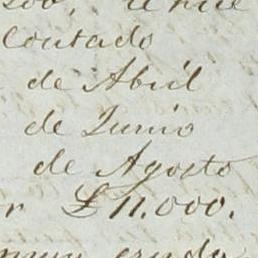 Contado
de Abril
de Junio
de Agosto
r £11.000.